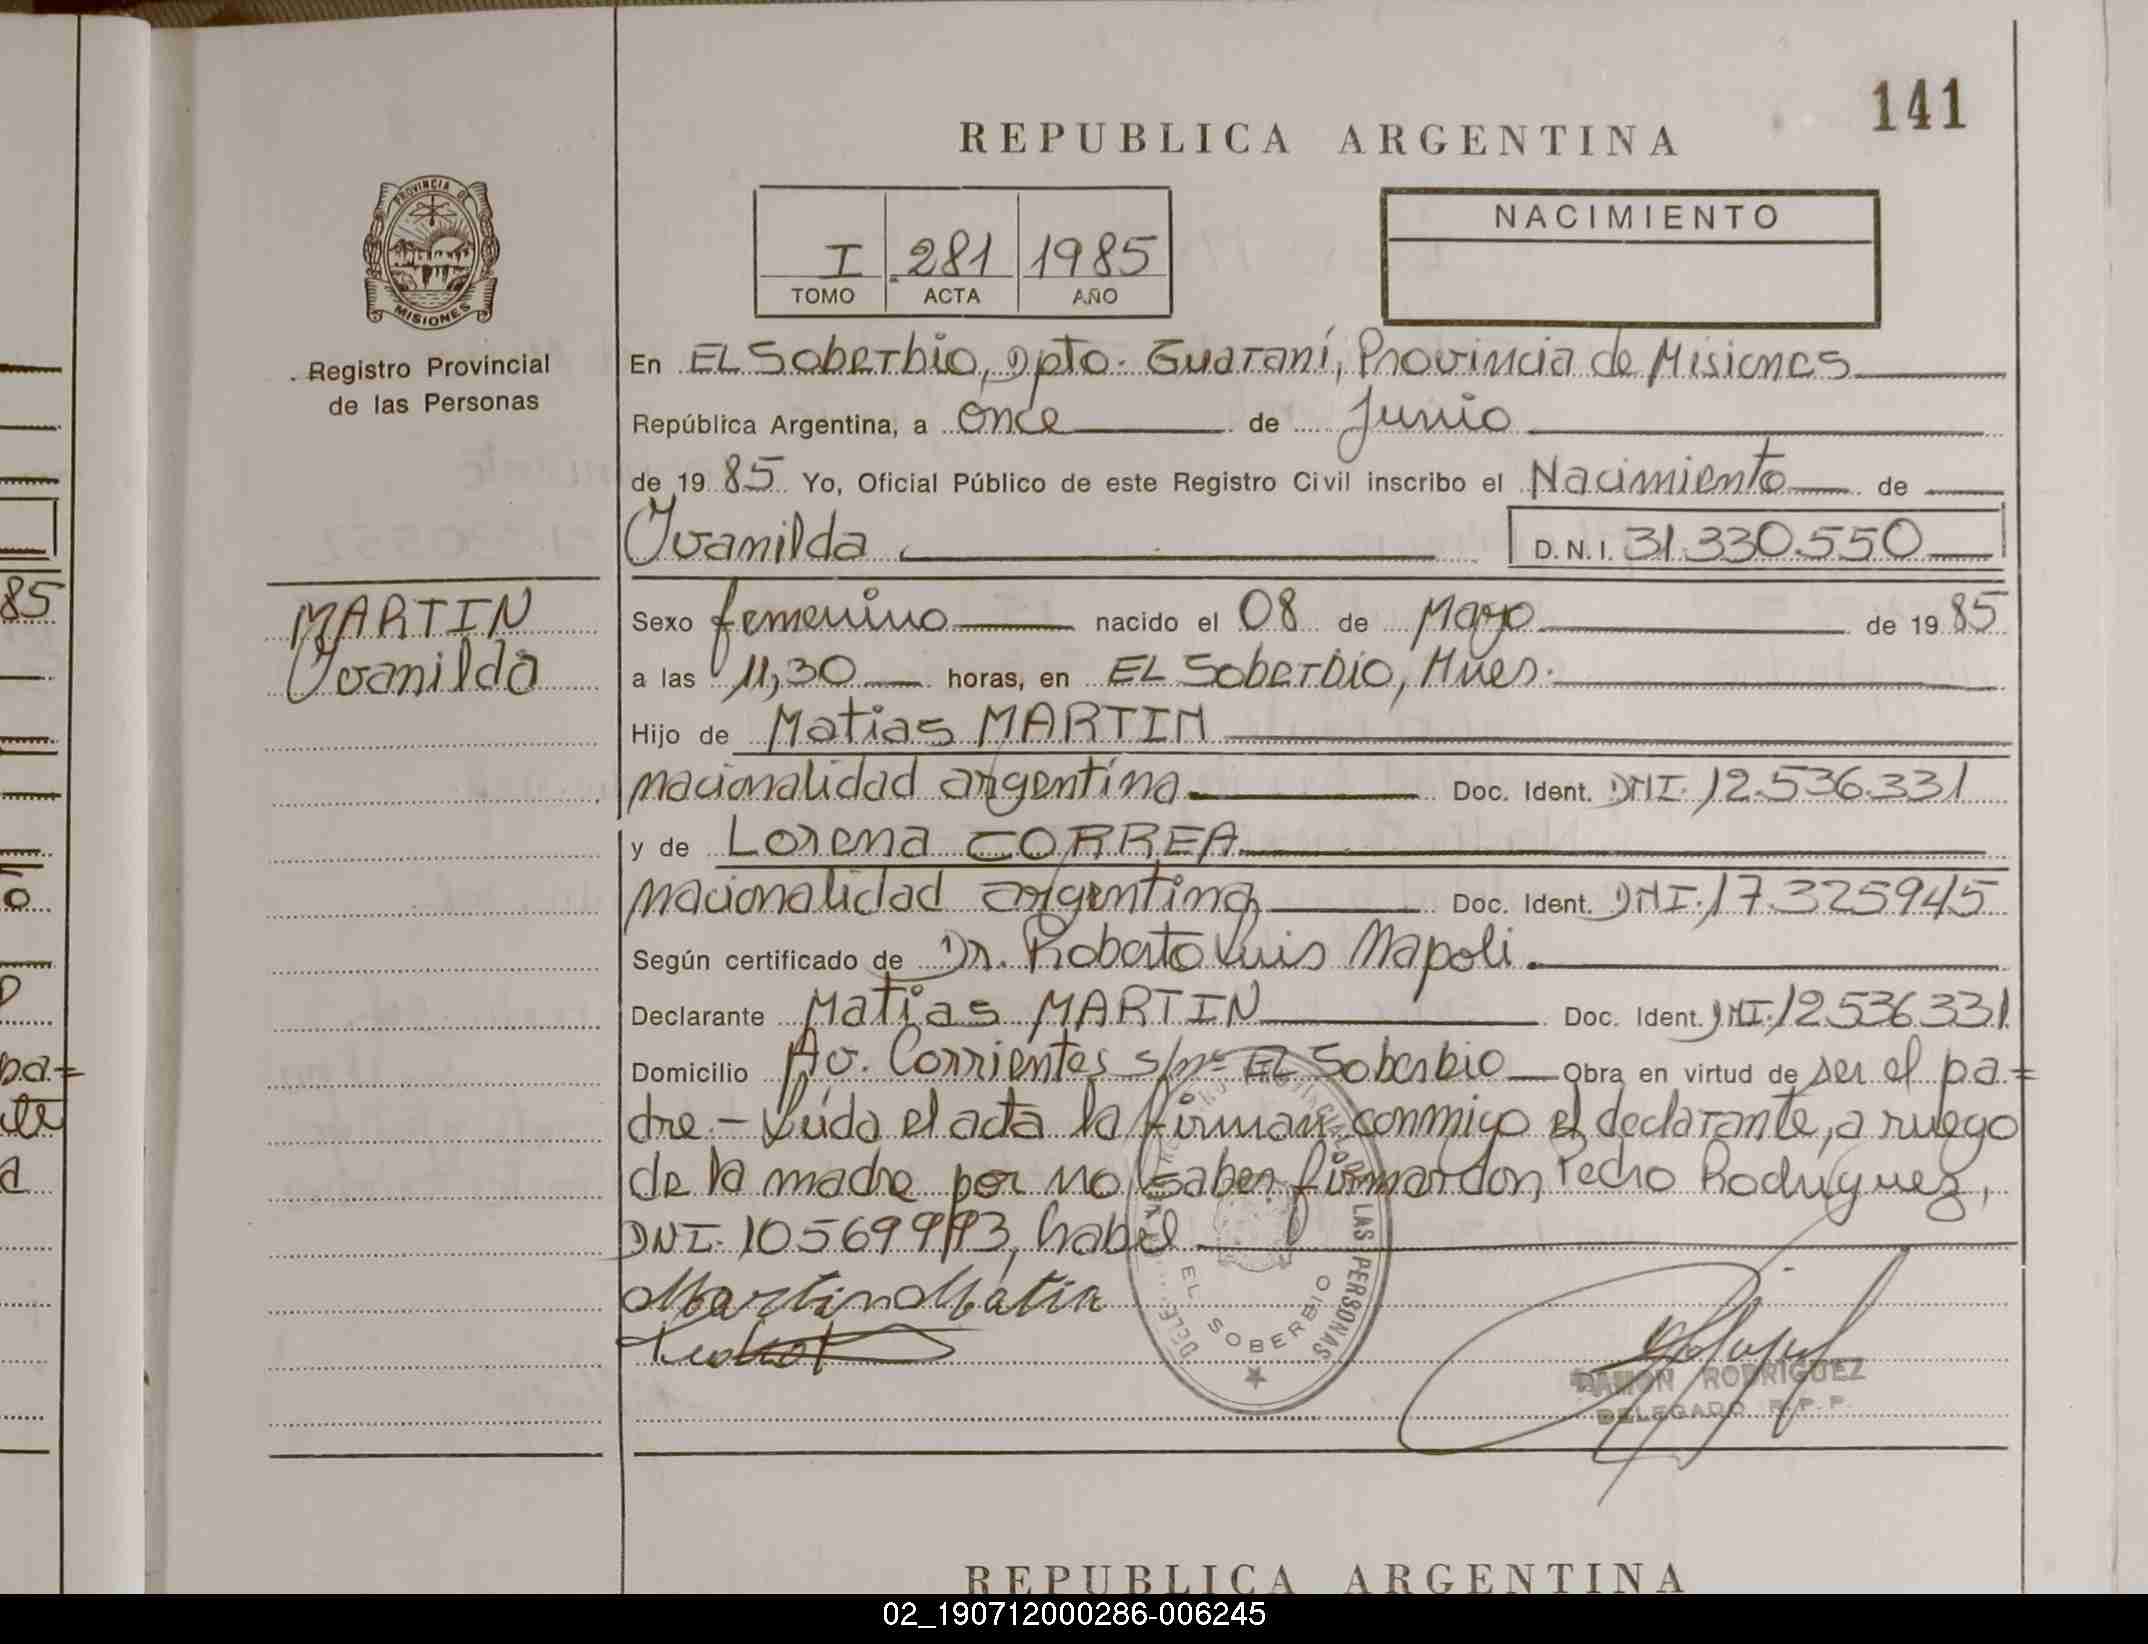 141
REPUBLICA ARGENTINA
PROVINCIA DE
MISIONES
I 281 1985
TOMO ACTA AÑO
NACIMIENTO
Registro Provincial
de las Personas
En EL Soberbio, Dpto. Guaraní, Provincia de Misiones
República Argentina, a once de Junio
de 1985 Yo, Oficial Público de este Registro Civil inscribo el Nacimiento de
Ivanilda D.N.I. 31.330.550
MARTIN
Ivanilda
Sexo femenino nacido el 08 de Mayo de 1985
a las 11,30 horas, en EL Soberbio, Mnes.
Hijo de Matias MARTIN
nacionalidad argentina Doc. Ident. DNI. 12.536.331
y de Lorena CORREA
nacionalidad argentina Doc. Ident. DNI. 17.325945
Según certificado de Dr. Roberto Luis Napoli.
Declarante Matias MARTIN Doc. Ident. DNI. 12536331
Domicilio Av. Corrientes s/nº EL Soberbio Obra en virtud de ser el pa=
dre.- Leída el acta la firman conmigo el declarante, a ruego
de la madre por no saber firmar don Pedro Rodriguez,
DNI. 10569993, habil
Martin Matia
LAS PERSONAS
EL SOBERBIO
RAMON RODRIGUEZ
DELEGADO R.P.P.
REPUBLICA ARGENTINA
85
02_190712000286-006245